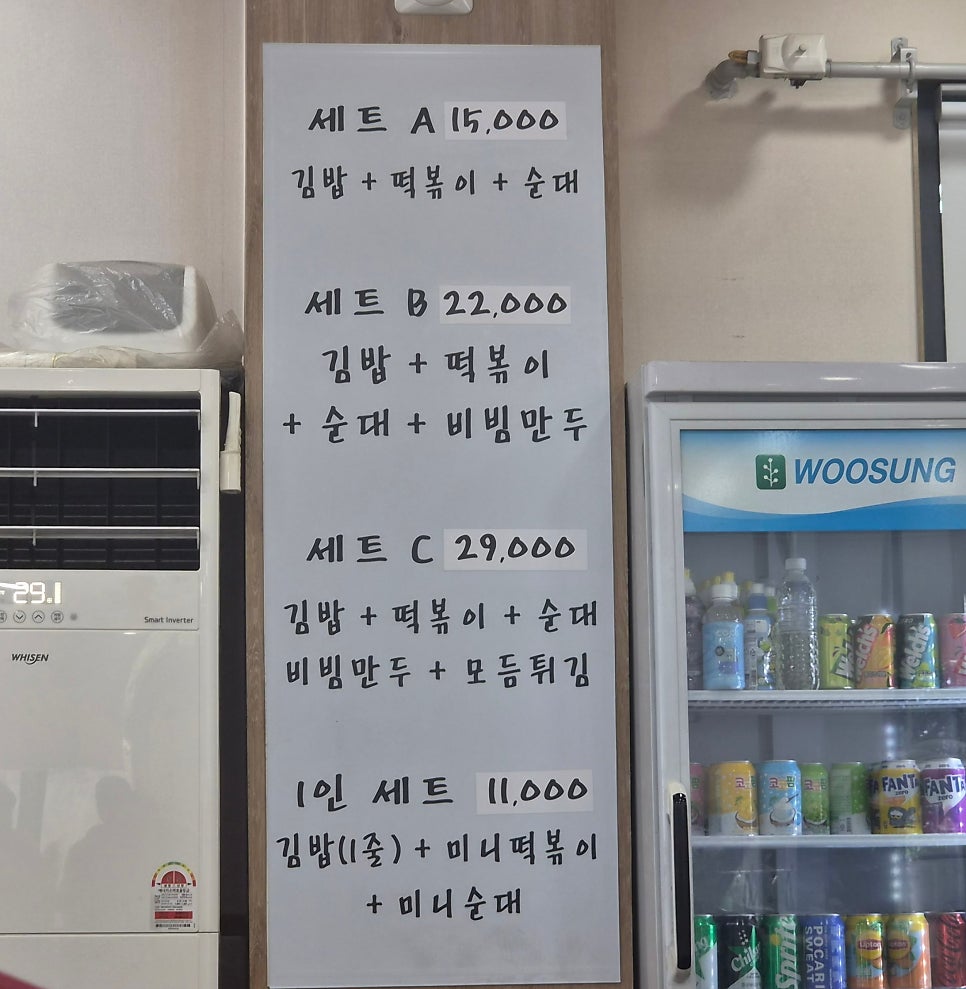 세트 A 15,000
김밥 + 떡볶이 + 순대
세트 B 22,000
김밥 + 떡볶이
+ 순대 + 비빔만두
세트 C 29,000
김밥 + 떡볶이 + 순대
비빔만두 + 모듬튀김
1인 세트 11,000
김밥(1줄) + 미니떡볶이
+ 미니순대
29.1
Smart Inverter
WHISEN
WOOSUNG
Welch's
Welch's
코코팜
코코팜
FANTA
zero
FANTA
zero
Chilsung
Sprite
POCARI
SWEAT
Lipton
Lipton